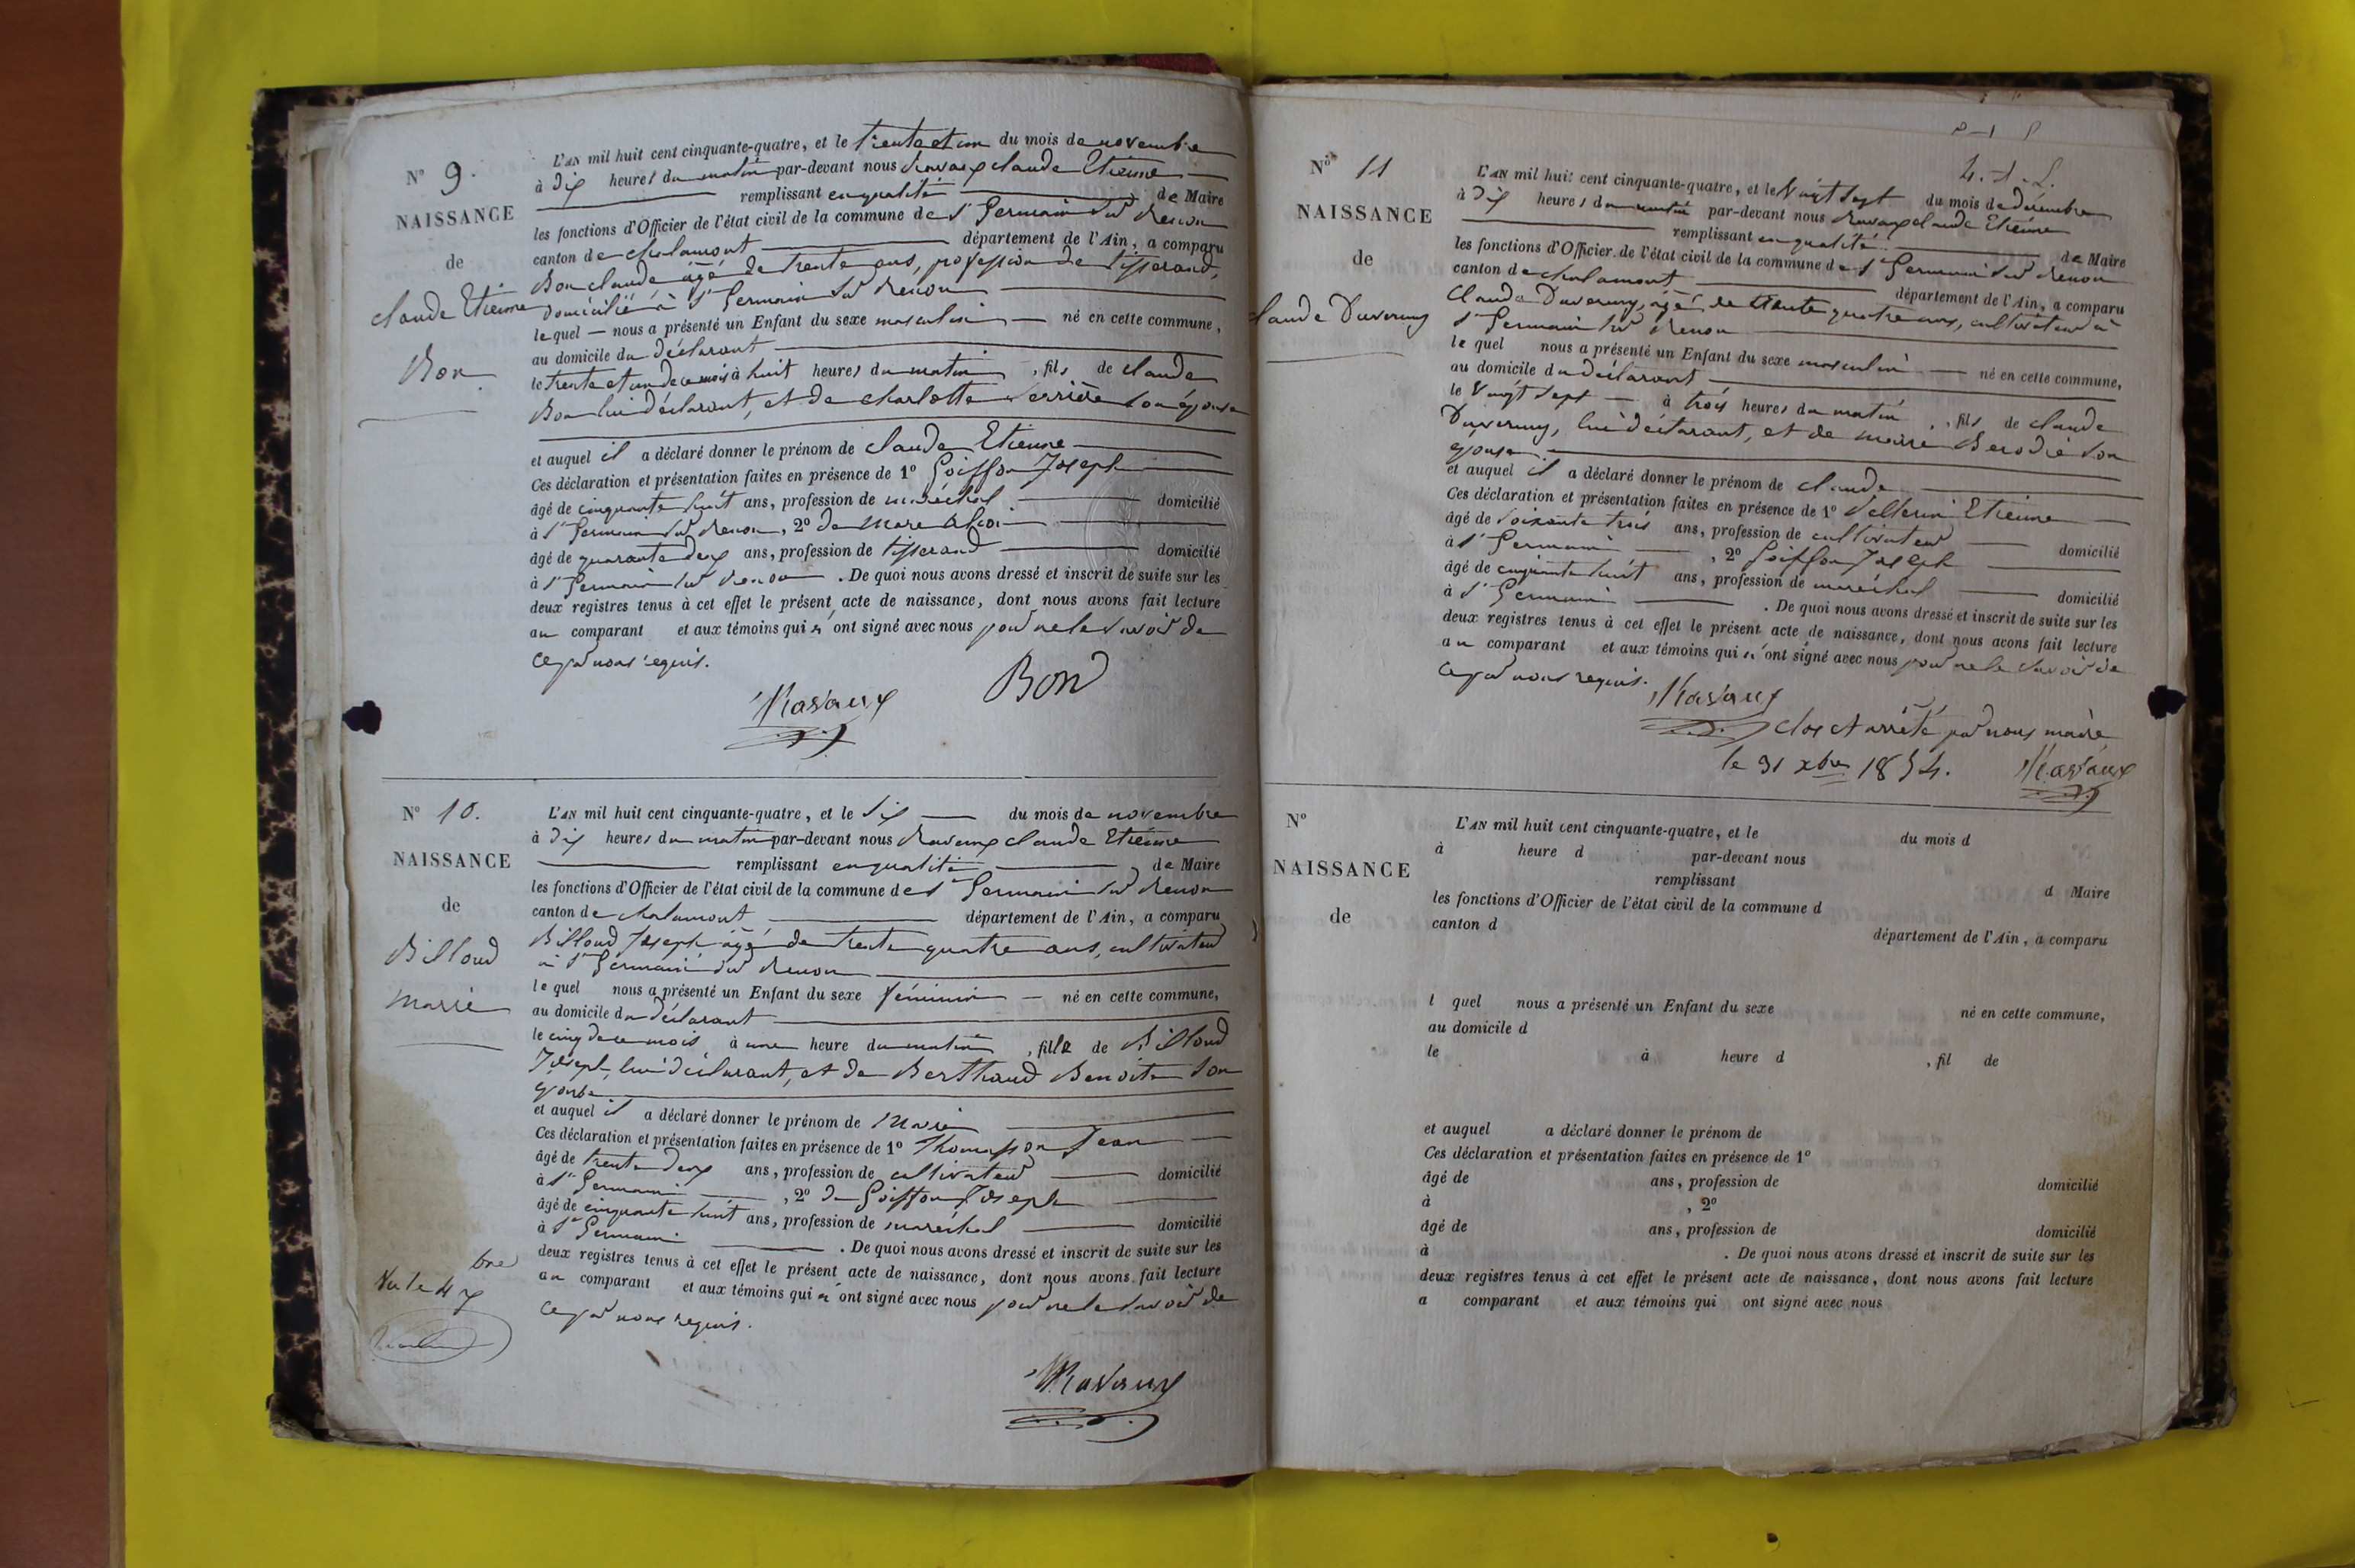 N° 9.
NAISSANCE
de
Claude Etienne
Bon
L'AN mil huit cent cinquante-quatre, et le trente et un du mois de novembre
à dix heures du matin par-devant nous Ravaux claude Etienne
remplissant en qualité de Maire
les fonctions d'Officier de l'état civil de la commune de St Germain sur Renon
canton de chalamont département de l'Ain, a comparu
Bon claude, âgé de trente ans, profession de tisserand,
domicilié à St Germain sur Renon
lequel nous a présenté un Enfant du sexe masculin né en cette commune,
au domicile du déclarant
le trente et un de ce mois à huit heures du matin, fils de claude
Bon lui déclarant, et de charlotte son épouse
et auquel il a déclaré donner le prénom de claude Etienne
Ces déclaration et présentation faites en présence de 1° Goiffon Joseph
âgé de cinquante huit ans, profession de maréchal domicilié
à St Germain sur Renon, 2° de Mare
âgé de quarante deux ans, profession de tisserand domicilié
à St Germain sur Renon. De quoi nous avons dressé et inscrit de suite sur les
deux registres tenus à cet effet le présent acte de naissance, dont nous avons fait lecture
au comparant et aux témoins qui n'ont signé avec nous pour ne le savoir de
ce par nous requis.
Ravaux
Bon
N° 10.
NAISSANCE
de
Billoud
Marie
L'AN mil huit cent cinquante-quatre, et le six du mois de novembre
à dix heures du matin par-devant nous Ravaux claude Etienne
remplissant en qualité de Maire
les fonctions d'Officier de l'état civil de la commune de St Germain sur Renon
canton de chalamont département de l'Ain, a comparu
Billoud Joseph âgé de trente quatre ans, cultivateur
à St Germain sur Renon
lequel nous a présenté un Enfant du sexe féminin né en cette commune,
au domicile du déclarant
le cinq de ce mois à une heure du matin, fille de Billoud
Joseph, lui déclarant, et de Berthaud Benoite son
épouse
et auquel il a déclaré donner le prénom de Marie
Ces déclaration et présentation faites en présence de 1° Thomasson Jean
âgé de trente deux ans, profession de cultivateur domicilié
à St Germain, 2° de Goiffon Joseph
âgé de cinquante huit ans, profession de maréchal domicilié
à St Germain. De quoi nous avons dressé et inscrit de suite sur les
deux registres tenus à cet effet le présent acte de naissance, dont nous avons fait lecture
au comparant et aux témoins qui n'ont signé avec nous pour ne le savoir de
ce par nous requis.
Vu le 4
Ravaux
N° 11
NAISSANCE
de
Claude Duverney
L'AN mil huit cent cinquante-quatre, et le vingt sept du mois de décembre
à dix heures du matin par-devant nous Ravaux claude Etienne
remplissant en qualité de Maire
les fonctions d'Officier de l'état civil de la commune de St Germain sur Renon
canton de chalamont département de l'Ain, a comparu
Claude Duverney, âgé de trente quatre ans, cultivateur à
St Germain sur Renon
lequel nous a présenté un Enfant du sexe masculin né en cette commune,
au domicile du déclarant
le vingt sept à trois heures du matin, fils de claude
Duverney, lui déclarant, et de marie Berodié son
épouse
et auquel il a déclaré donner le prénom de claude
Ces déclaration et présentation faites en présence de 1° Etienne
âgé de soixante trois ans, profession de cultivateur domicilié
à St Germain, 2° Goiffon Joseph
âgé de cinquante huit ans, profession de maréchal domicilié
à St Germain. De quoi nous avons dressé et inscrit de suite sur les
deux registres tenus à cet effet le présent acte de naissance, dont nous avons fait lecture
au comparant et aux témoins qui n'ont signé avec nous pour ne le savoir de
ce par nous requis.
Ravaux
Clos et arrêté par nous maire
le 31 xbre 1854.
Ravaux
N°
NAISSANCE
de
L'AN mil huit cent cinquante-quatre, et le du mois d
à heure d par-devant nous
remplissant d Maire
les fonctions d'Officier de l'état civil de la commune d
canton d département de l'Ain, a comparu
l quel nous a présenté un Enfant du sexe né en cette commune,
au domicile d
le à heure d , fil de
et auquel a déclaré donner le prénom de
Ces déclaration et présentation faites en présence de 1°
âgé de ans, profession de domicilié
à , 2°
âgé de ans, profession de domicilié
à . De quoi nous avons dressé et inscrit de suite sur les
deux registres tenus à cet effet le présent acte de naissance, dont nous avons fait lecture
a comparant et aux témoins qui ont signé avec nous